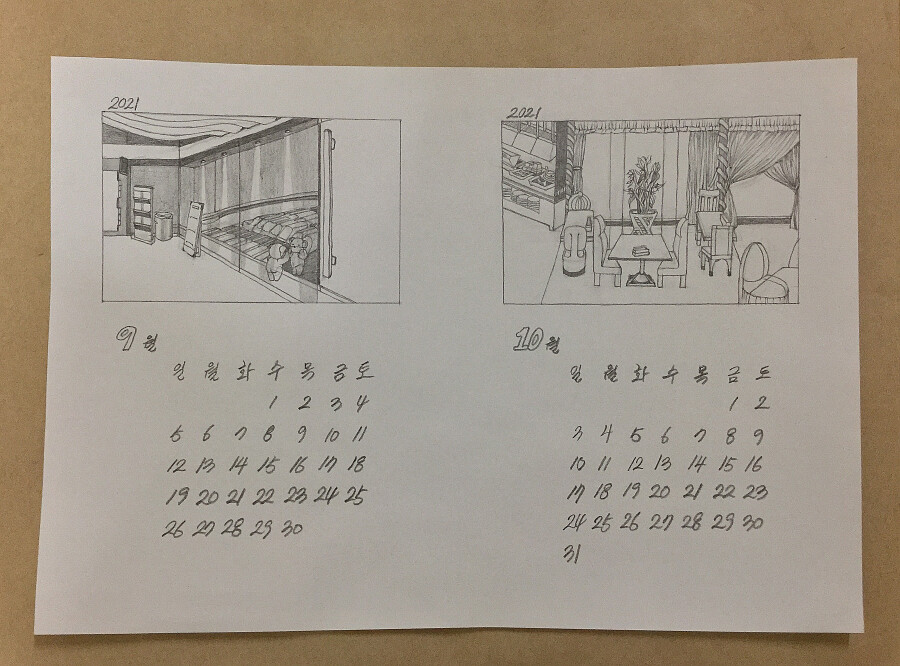 2021
9월
일 월 화 수 목 금 토
1 2 3 4
5 6 7 8 9 10 11
12 13 14 15 16 17 18
19 20 21 22 23 24 25
26 27 28 29 30
2021
10월
일 월 화 수 목 금 토
1 2
3 4 5 6 7 8 9
10 11 12 13 14 15 16
17 18 19 20 21 22 23
24 25 26 27 28 29 30
31